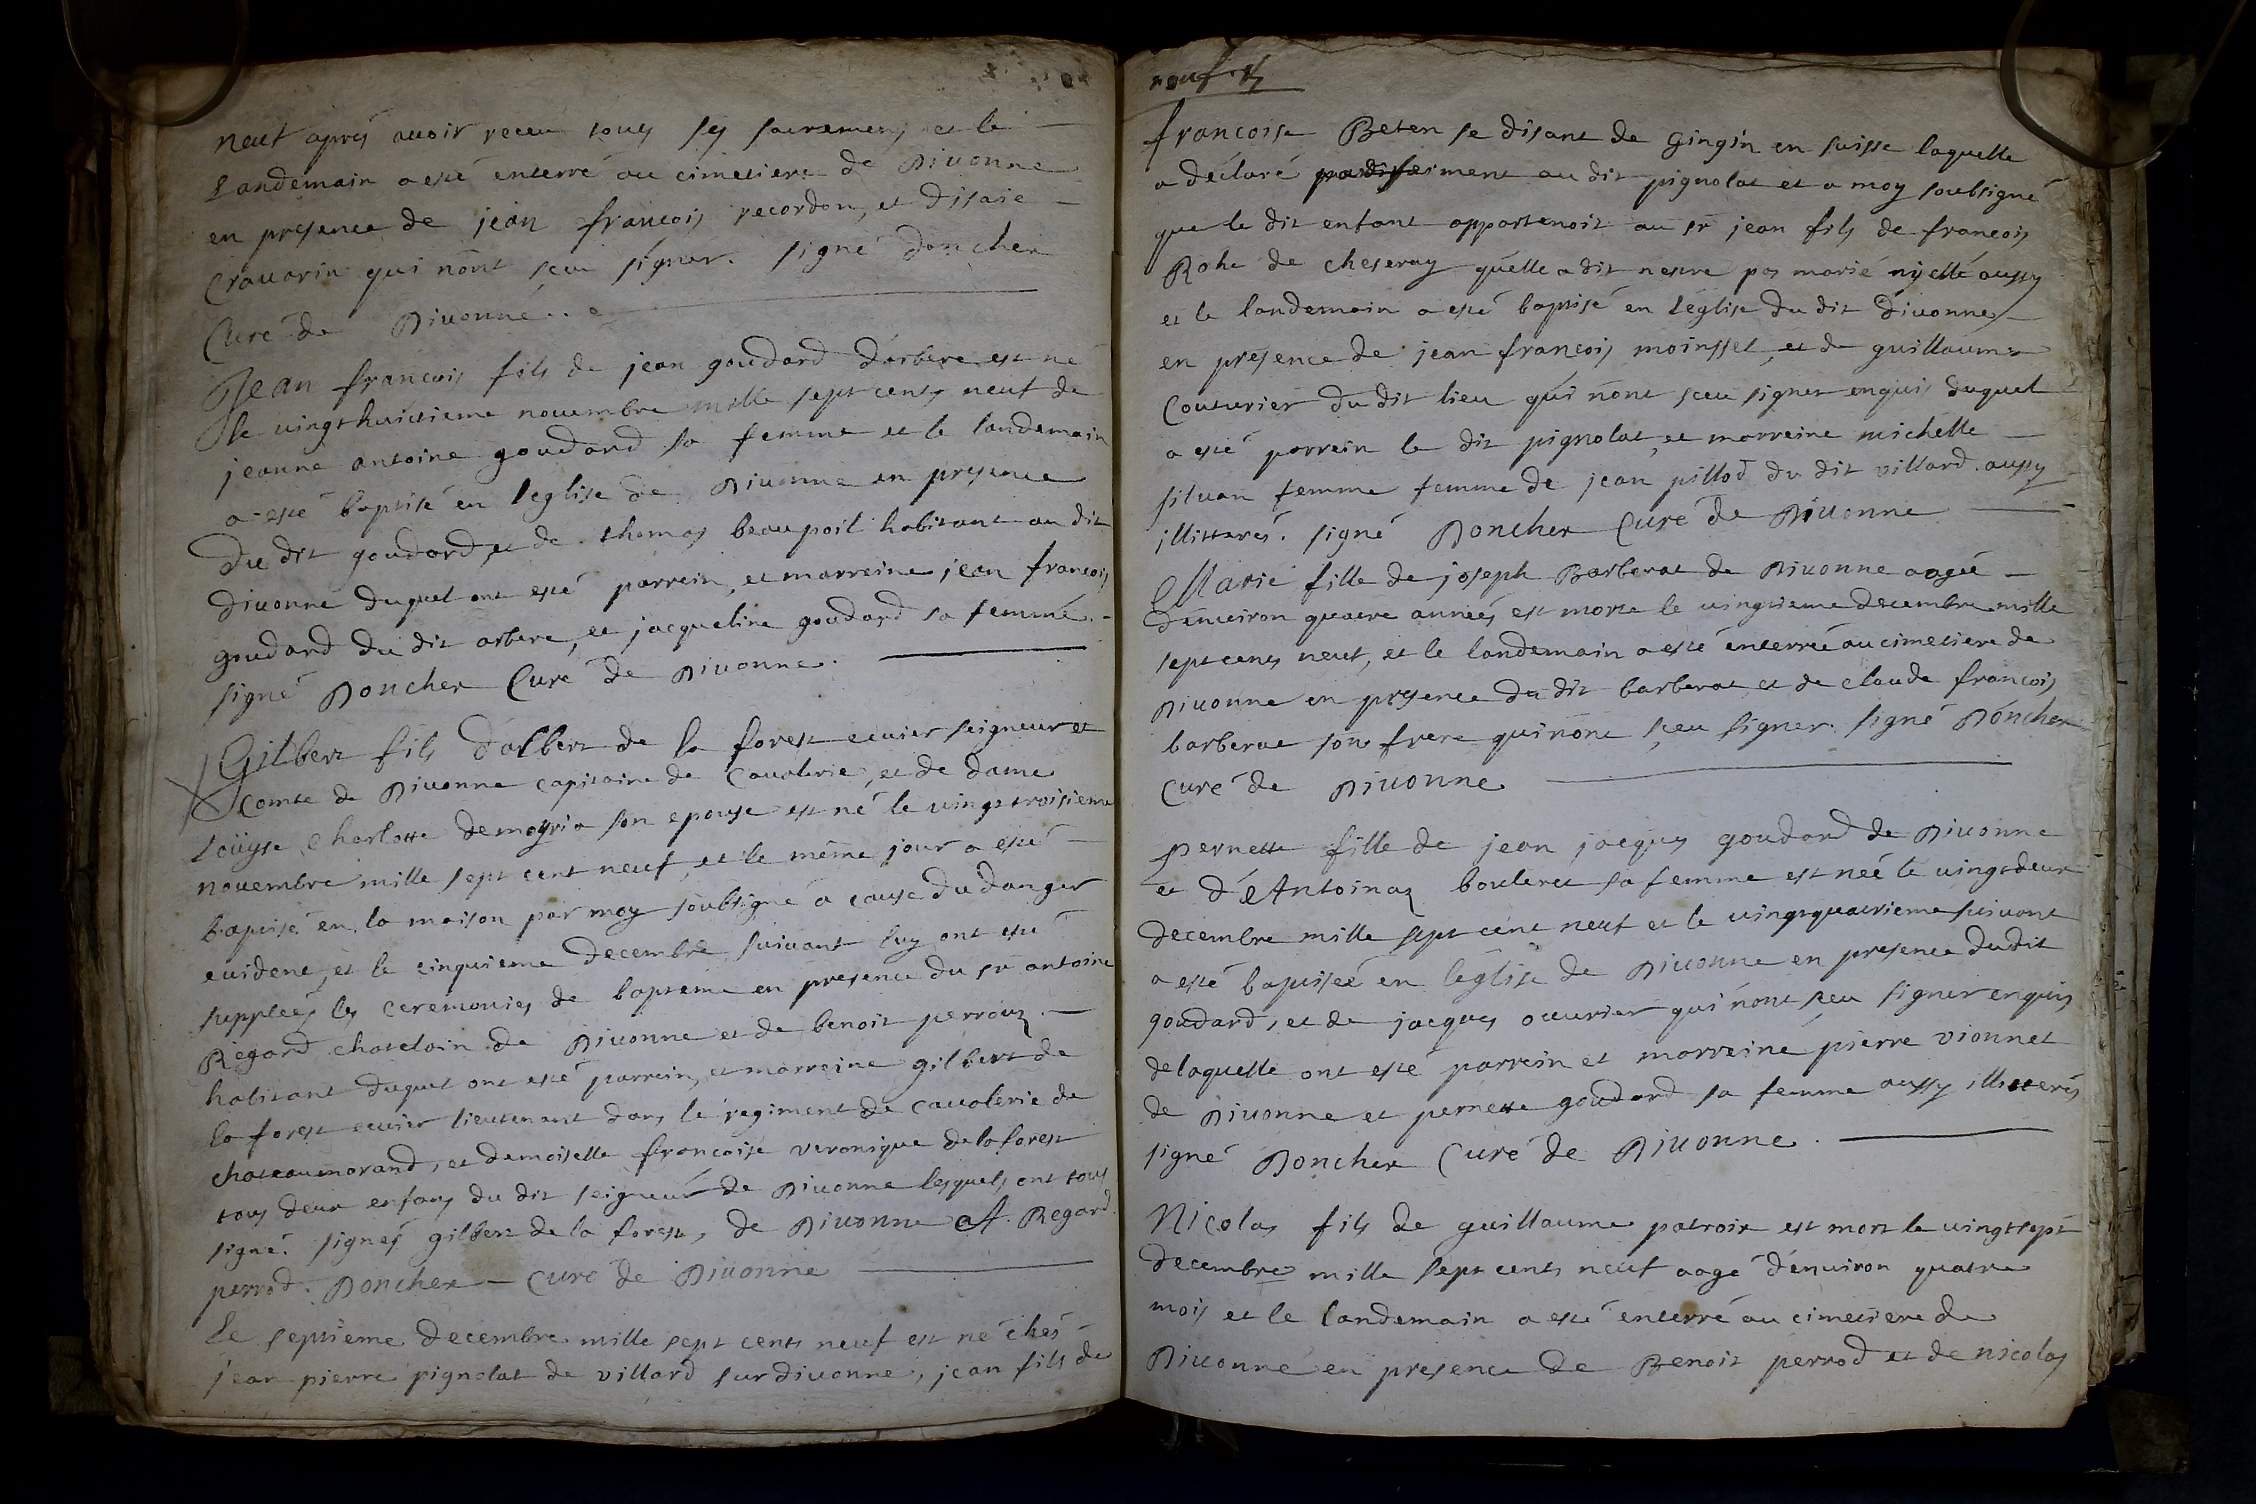 neuf aprés auoir receu tous ses sacremens et le
landemain a esté enterré au cimetiere de Diuonne
en presence de jean francois recordon, et disaie
Crauarin qui nónt sceu signer. signé doncher
Curé de Diuonne
Jean francois fils de jean goudard d'arbere est né
le vingt huictieme nouembre mille sept cents neuf de
jeanne antoine goudard sa femme et le landemain
a esté baptisé en l'eglise de Diuonne en presence
du dit goudard, et de thomas beaupoil habitant au dit
diuonne duquel ont esté parrein, et marreine jean francois
goudard du dit arbere, et jacqueline goudard sa femme
signé Doncher Curé de Diuonne.
Gilbert fils d'albert de la forest ecuier seigneur et
Comte de Diuonne capitaine de Caualerie, et de dame
Loüyse Charlotte demoyria son epouse est né le vingt troisieme
nouembre mille sept cent neuf, et le même jour a esté
baptisé en la maison par moy soubsigné à cause du danger
euident, et le cinquieme decembre suiuant luy ont esté
suppleés les ceremonies de baptème en presence du sr antoine
Regard chatelain de Diuonne et de benoit perrouz
habitant duquel ont esté parrein, et marreine gilbert de
la forest ecuier lieutenant dans le regiment de caualerie de
chateaumorand, et demoiselle francoise veronique de la forest
tous deux enfans du dit seigneur de Diuonne lesquels ont tous
signé. signés gilbert de la forest, de Diuonne A. Regard
perrod. Doncher - Curé de Diuonne
Le septieme decembre mille sept cents neuf est né chés
jean pierre pignolat de villard sur diuonne, jean fils de
neuf
francoise Beten se disant de Gingin en suisse laquelle
a déclaré au dit pignolat et a moy soubsigné
que le dit enfant appartenoit au sr jean fils de francois
Rohe de cheseray quélle a dit nestre pas marié ny elle aussy
et le landemain a esté baptisé en l'église du dit diuonne
en présence de jean francois moinsset, et de guillaume
Couturier du dit lieu qui nónt sceu signer enquis duquel
a esté parrein le dit pignolat, et marreine michelle
siluan femme femme de jean pillod du dit villard aussy
illitterés. signé Doncher Curé de Diuonne
Marie fille de joseph Barberat de Diuonne aagée
d'enuiron quatre années est morte le vingtieme decembre mille
sept cents neuf, et le landemain a esté enterrée au cimetiere de
Diuonne en presence du dit barberat et de claude francois
barberat son frere qui nónt sçeu signer. signé Dóncher
Curé de Diuonne
pernette fille de jean jacques goudard de Diuonne
et d'Antoinaz bouleret sa femme est née le vingt deux
decembre mille sept cent neuf et le vingt quatrieme suiuant
a esté baptiseé en léglise de Diuonne en presence du dit
goudard, et de jacques ouurier qui nónt sçeu signer enquis
de laquelle ont esté parrein et marreine pierre vionnet
de Diuonne et pernette goudard sa femme aussy illitterés
signé Doncher Curé de Diuonne.
Nicolas fils de guillaume patroix est mort le vingt sept
decembre mille sept cents neuf aagé d'enuiron quatre
mois et le landemain a esté enterré au cimetiere de
Diuonne en presence de Benoit perrod et de nicolas